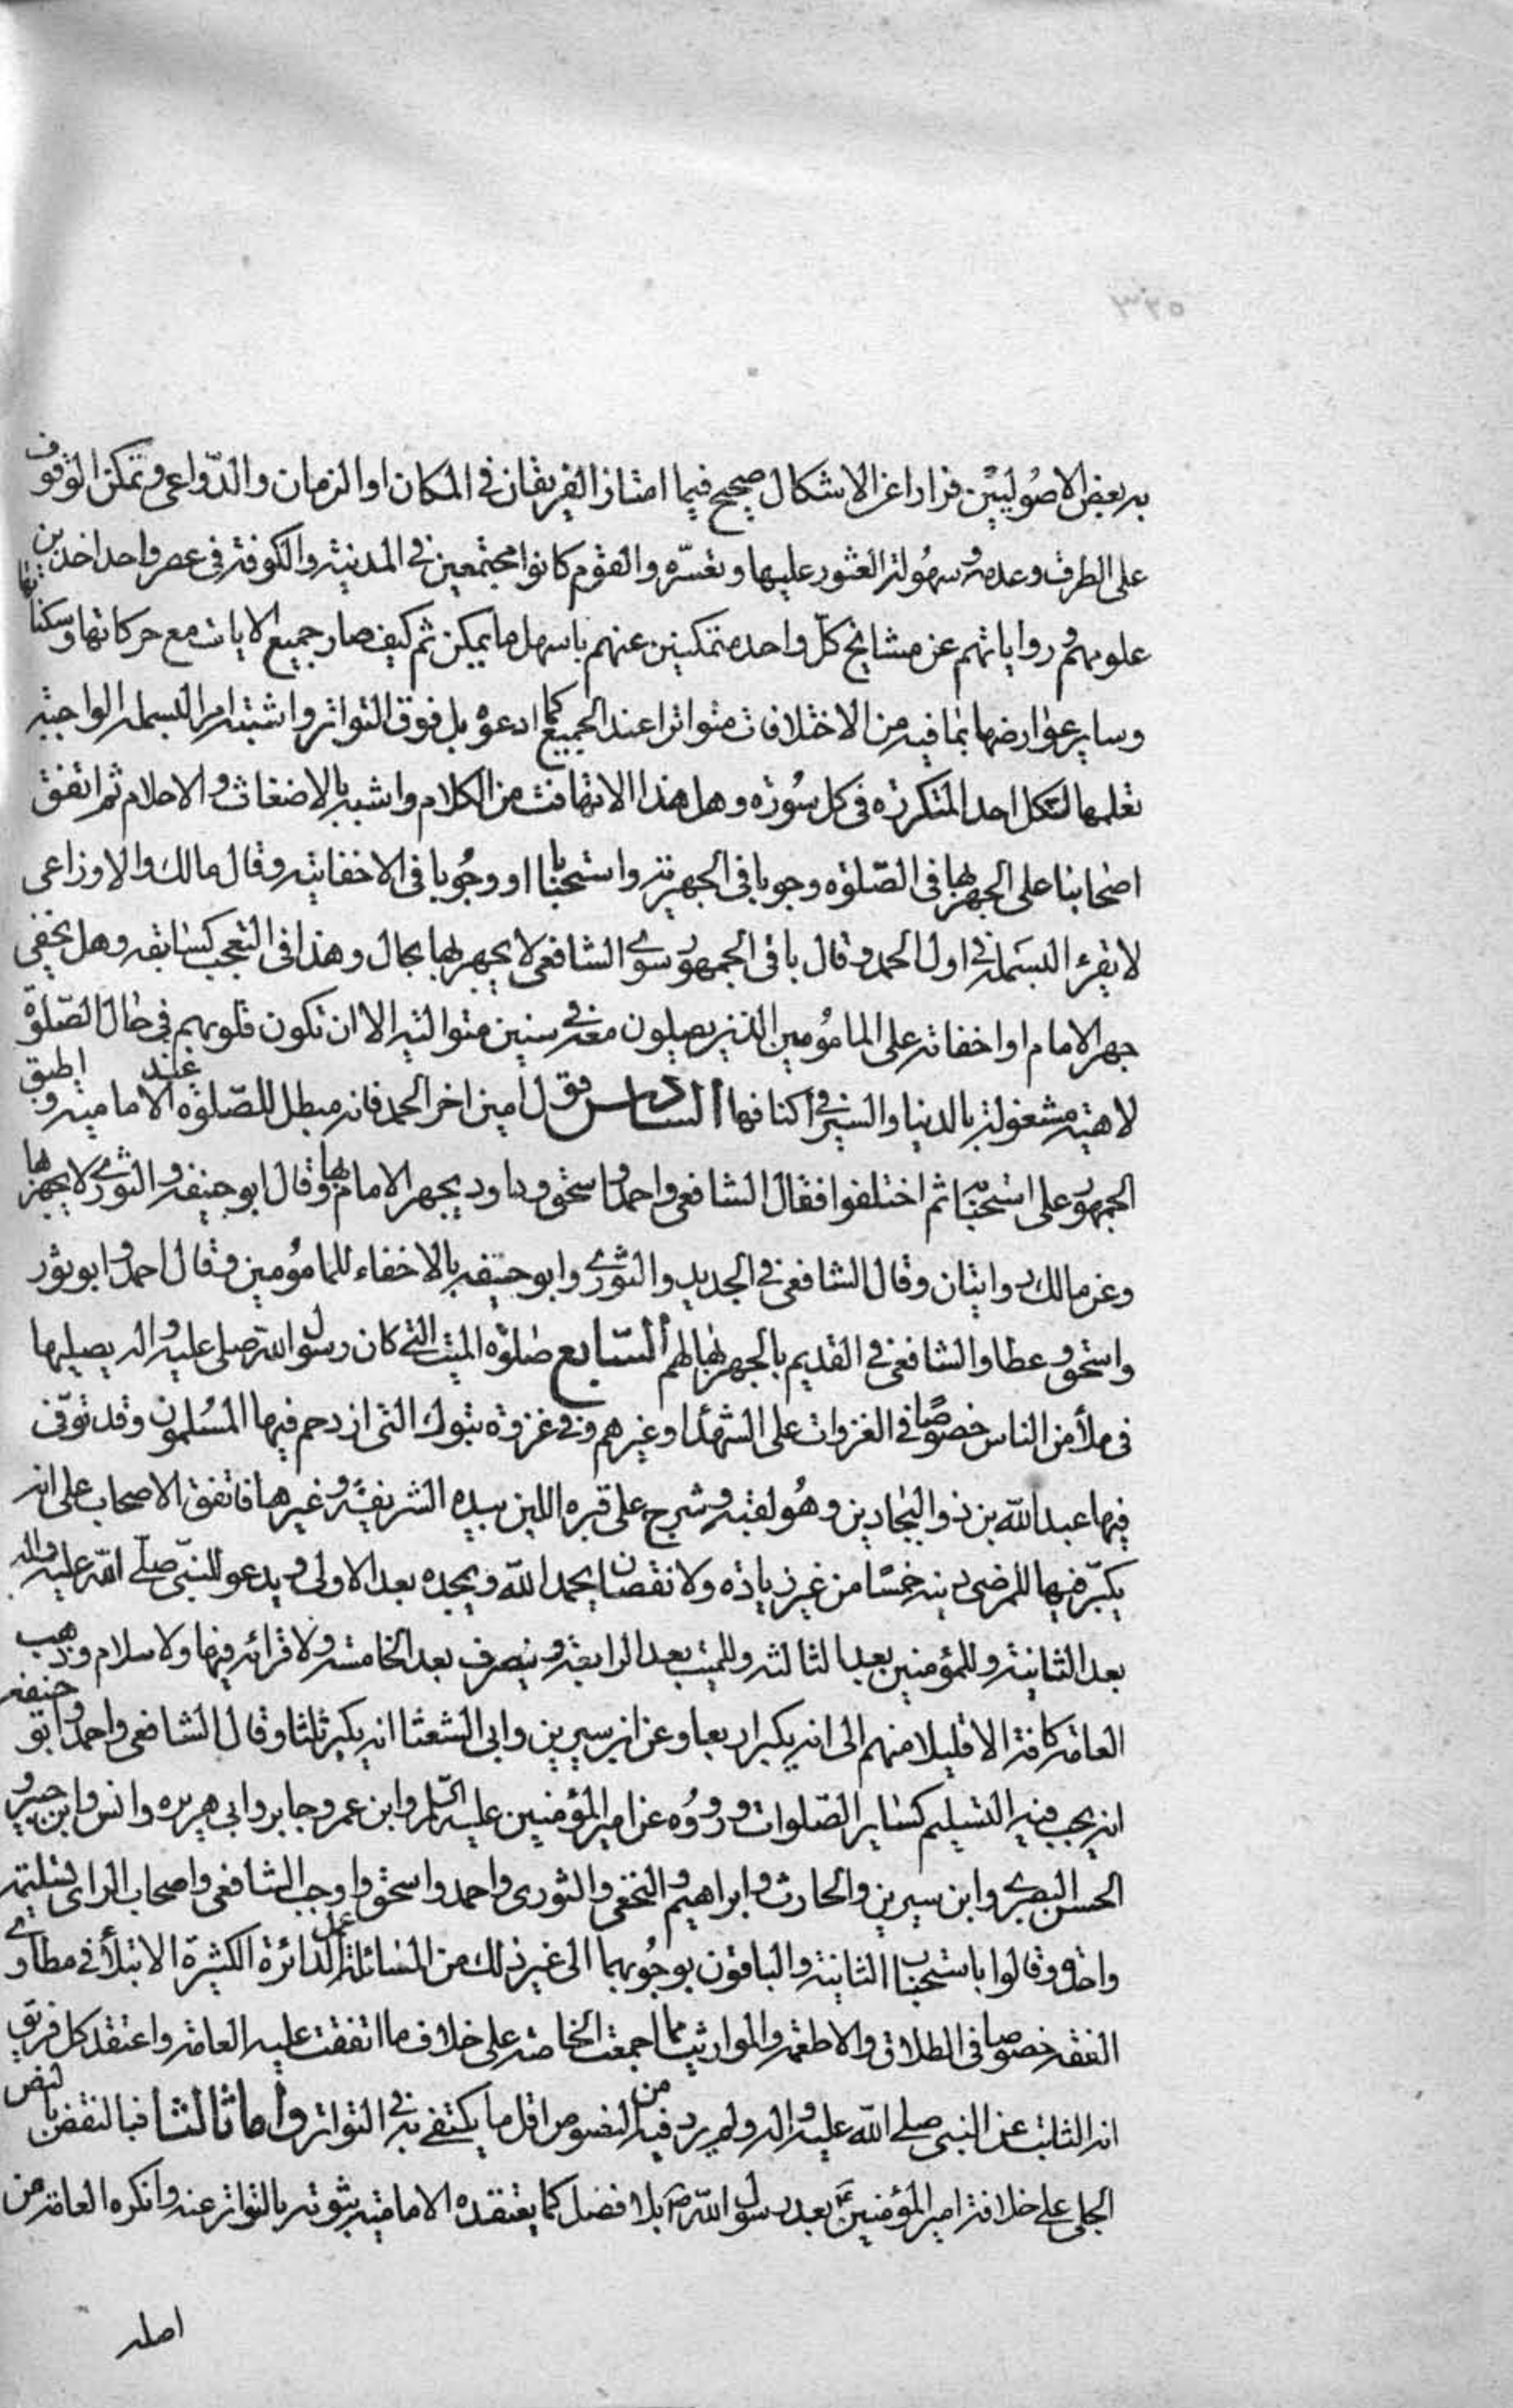 به بعض الاصُوليّين فرارا عن الاشكال صحيح فيما امتاز الفريقان في المكان او الزمان والدّواعى وتمكن الوقوف
على الطرف وعدمه وسهُولة العثور عليها وتعسّره والقوم كانوا مجتمعين في المدينة والكوفة في عصر واحد اخذين
علومهم ورواياتهم عن مشايخ كلّ واحد متمكنين عنهم باسهل ما يمكن ثم كيف صار جميع الايات مع حركاتها وسكناتها
وساير عوارضها بما فيه من الاختلافات متواترا عند الجميع كما ادعوه بل فوق التواتر واشتبه امر البسملة الواجبة
تعلمها لكل احد المتكررة في كل سُورة وهل هذا الا تهافت من الكلام واشبه بالاضغاث والاحلام ثم اتفق
اصحابنا على الجهر بها في الصّلوة وجوبا في الجهرية واستحبابا او وجُوبا في الاخفاتية وقال مالك والاوزاعى
لا يقرء البسَملة في اول الحمد وقال باقى الجمهور سوى الشافعى لا يجهر بها بحال وهذا في التعجب كسابقه وهل يخفى
جهر الامام او اخفاته على المامُومين الذين يصلون معه في سنين متوالية الا ان تكون قلوبهم في حال الصّلوة
لاهية مشغولة بالدنيا والسير في اكنافها السادس قول امين اخر الحمد فانه مبطل للصّلوة عند الامامية واطبق
الجمهور على استحبابه ثم اختلفوا فقال الشافعى واحمد واسحق وداود يجهر الامام بها وقال ابو حنيفه والثورى لا يجهر بها
وعن مالك روايتان وقال الشافعى في الجديد والثورى وابو حنيفه بالاخفاء للمامُومين وقال احمد وابو ثور
واسحق وعطا والشافعى في القديم بالجهر بها لهم السّابع صلوة الميت التي كان رسول الله صلى عليه واله يصليها
في ملأ من الناس خصوصًا في الغزوات على الشهدا وغيرهم وفى غزوة تبوك التى ازدحم فيها المسُلمون وقد توفّى
فيها عبد الله بن ذو البجادين وهُو لقبه وشرج على قبره اللبن بيده الشريفة وغيرها فاتفق الاصحاب على انه
يكبّر فيها للمرضى دينه خمسًا من غير زيادة ولا نقصان يحمد الله ويمجده بعد الاولى ويدعو للنبّى صلّى الله عليه واله
بعد الثانية وللمؤمنين بعد الثالثة وللميت بعد الرابعة وينصرف بعد الخامسة ولا قرائة فيها ولا سلام وذهب
العامة كافة الا قليلا منهم الى انه يكبر اربعا وعن ابن سيرين وابى الشعثا انه يكبر ثلثا وقال الشافعى واحمد وابو حنيفه
انه يجب فيه التسليم كساير الصّلوات ورووُه عن امير المؤمنين عليه السّلم وابن عمر وجابر وابى هريره وانس وابن جبير و
الحسن البصرى وابن سيرين والحارث وابراهيم والنخعى والثورى واحمد واسحق واوجب الشافعى واصحاب الراى تسليمة
واحدة وقالوا باستحباب الثانية والباقون بوجُوبهما الى غير ذلك من المسائلة الدائرة الكثيرة الابتلأ في مطاوى
الفقه خصوصا في الطلاق والاطعمة والمواريث مما اجمعت الخاصة على خلاف ما اتفقت عليه العامة واعتقد كل فريق
انه الثابت عن النبى صلى الله عليه واله ولم يرد فيه من النصوص اقل ما يكتفى به في التواتر واما ثالثا فبالنقض بالنص
الجلى على خلافة امير المؤمنين ع بعد رسول الله ص بلا فصل كما يعتقده الامامية بثبوته بالتواتر عنه وانكره العامة من
اصله